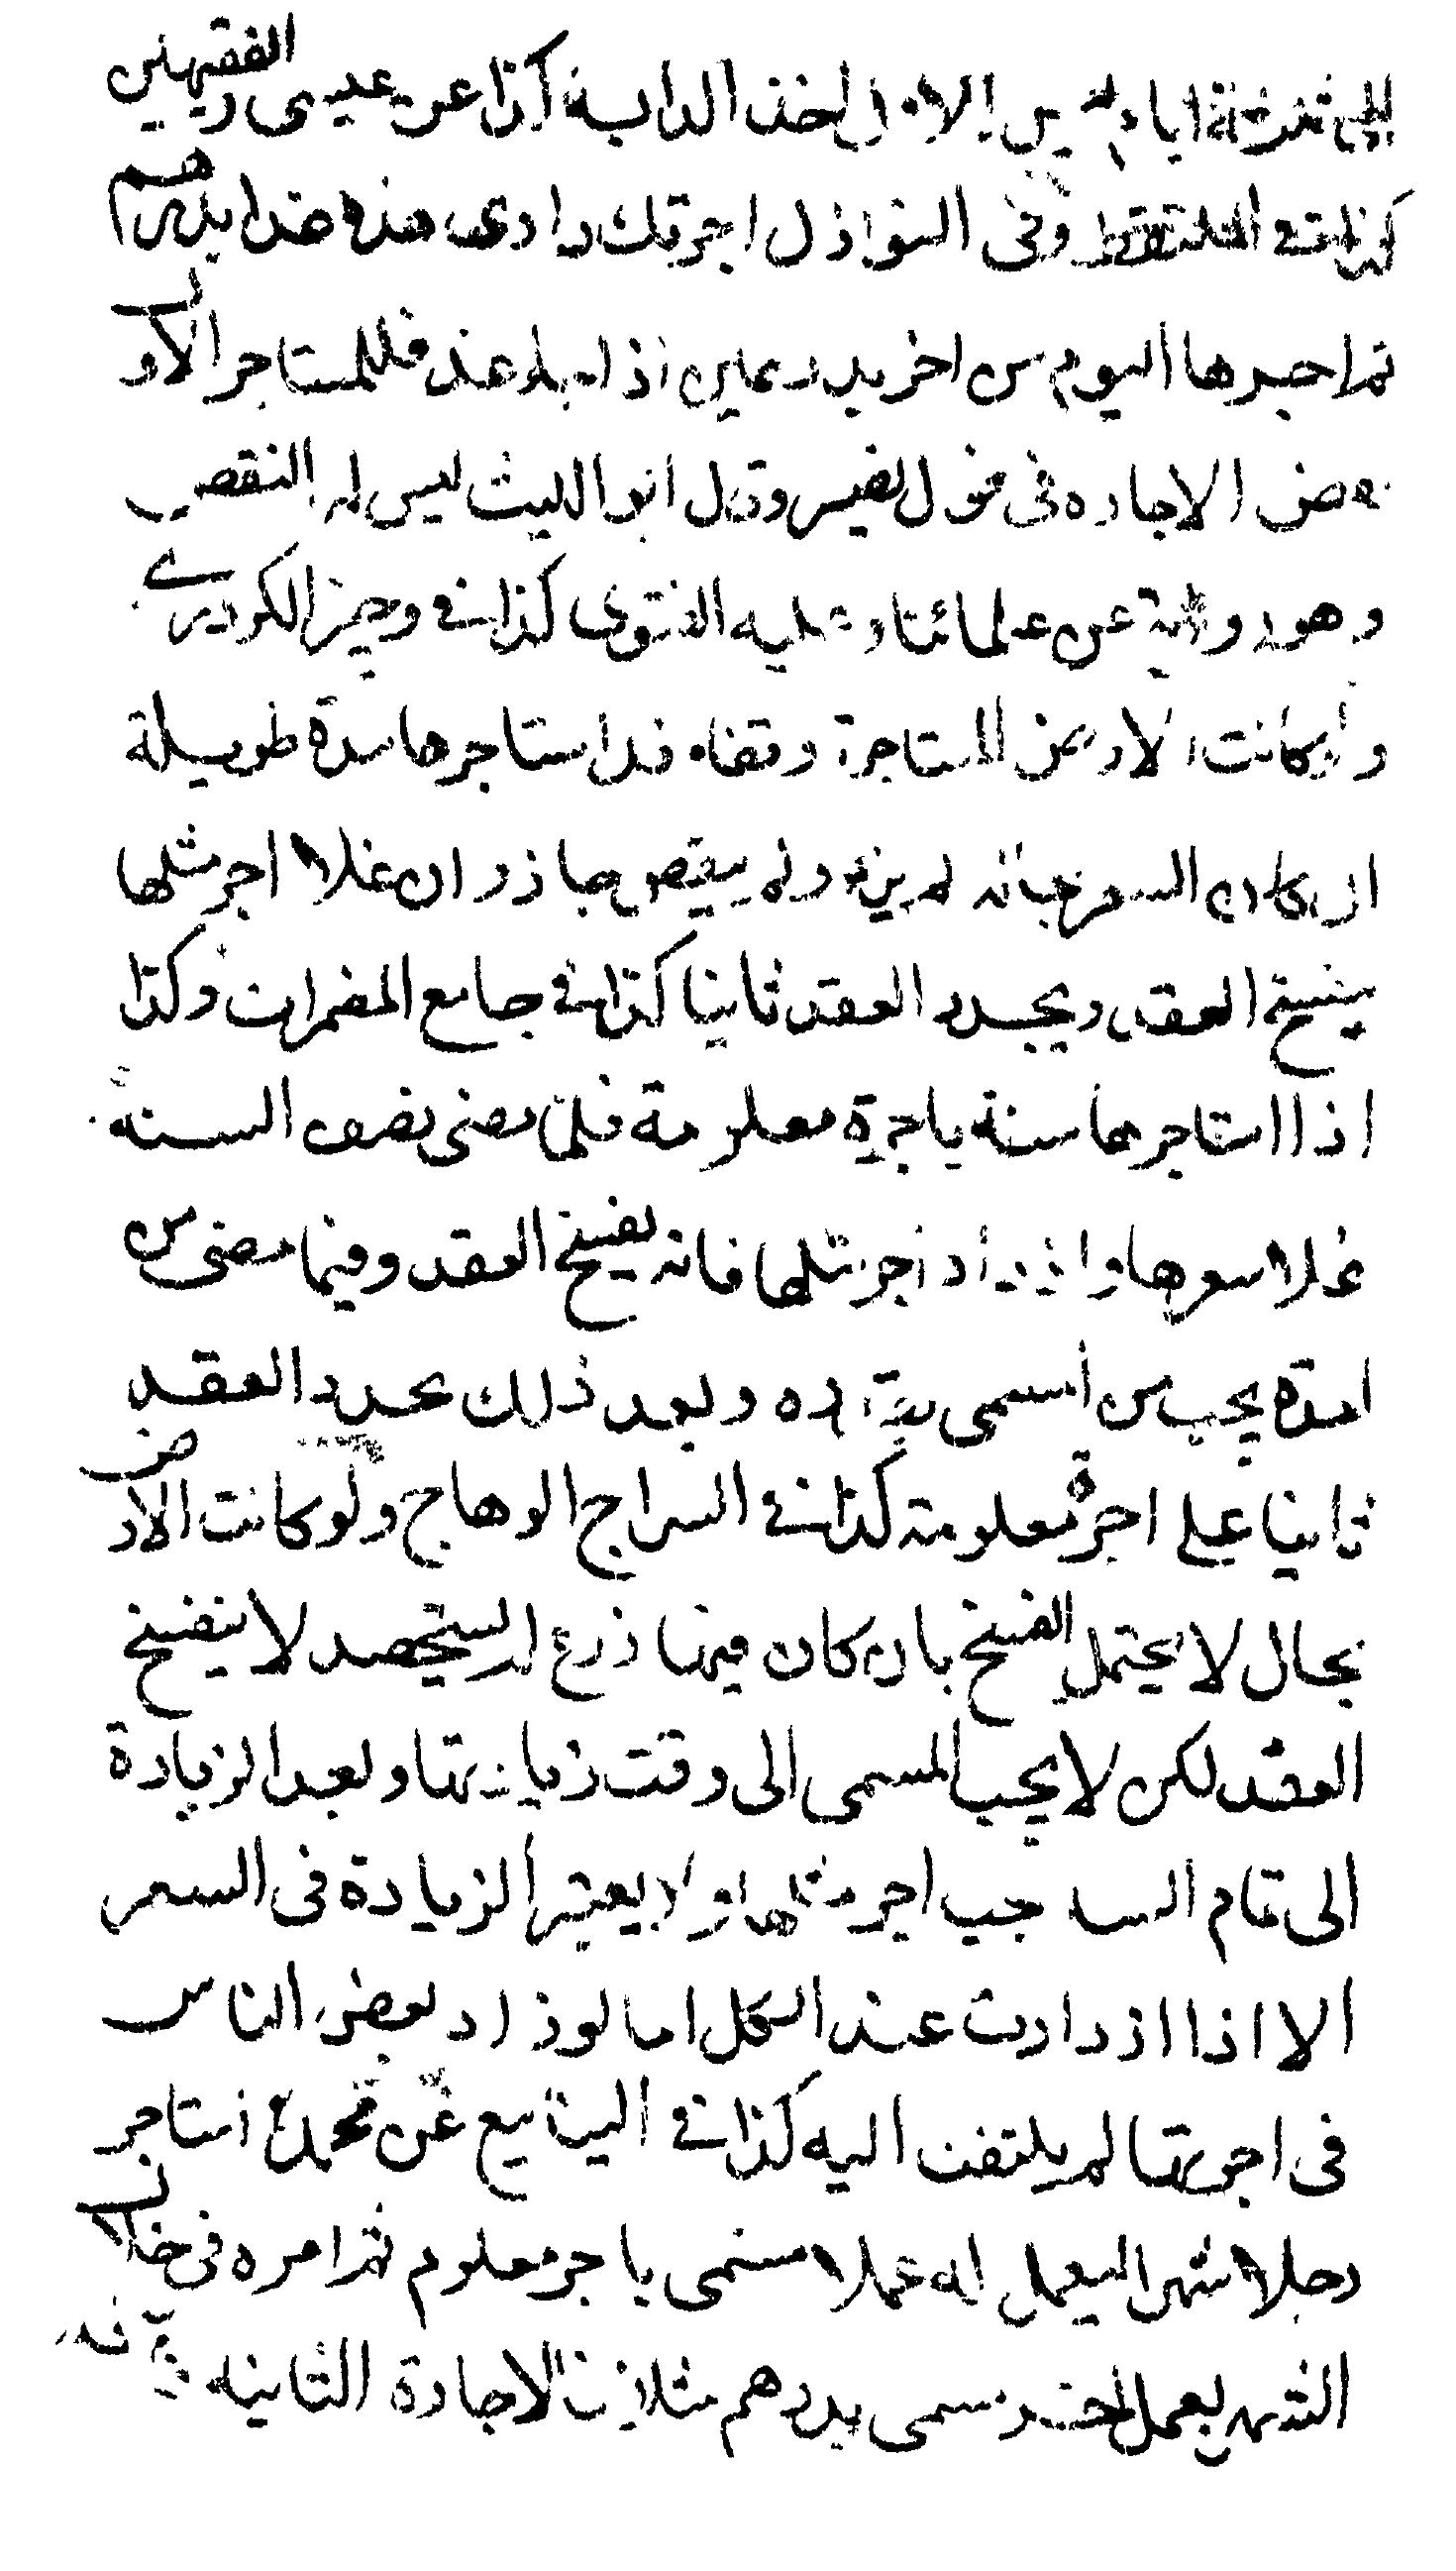 ثلثة ايام الا ان ياخذ الدابة كذا عن عيسى بن الفقيهين
كذا في الملتقط وفي النوازل اجرتك داري هذه غدا بدرهم
ثم اجرها اليوم من اخر بدرهمين اذا جاء غد فللمستاجر الاول
نقض الاجارة في قول نصير وقال ابو الليث ليس له النقض
وهو رواية عن علمائنا وعليه الفتوى كذا في وجيز الكردري
وان كانت الارض المستاجرة وقفا فاستاجرها مدة طويلة
ان كان السعر بحاله لم يزد ولم ينقص جاز وان غلا اجر مثلها
ينفسخ العقد ويجدد العقد ثانيا كذا في جامع المضمرات وكذا
اذا استاجرها سنة باجرة معلومة فلما مضى نصف السنة
غلا سعرها وازداد اجر مثلها فانه يفسخ العقد وفيما مضى من
المدة يجب من المسمى بقدره وبعد ذلك يجدد العقد
ثانيا على اجرة معلومة كذا في السراج الوهاج ولو كانت الارض
بحال لا يحتمل الفسخ بان كان فيها زرع لم يستحصد لا ينفسخ
العقد لكن لا يجب المسمى الى وقت زيادتها وبعد الزيادة
الى تمام السنة يجب اجر مثلها ولا يعتبر الزيادة في السعر
الا اذا ازدادت عند الكل اما لو زاد بعض الناس
في اجرتها لم يلتفت اليه كذا في الينابيع عن محمد استاجر
رجلا شهرا ليعمل له عملا مسمى باجر معلوم ثم امره في خلال
الشهر بعمل اخر مسمى بدرهم مثلا فالاجارة الثانية